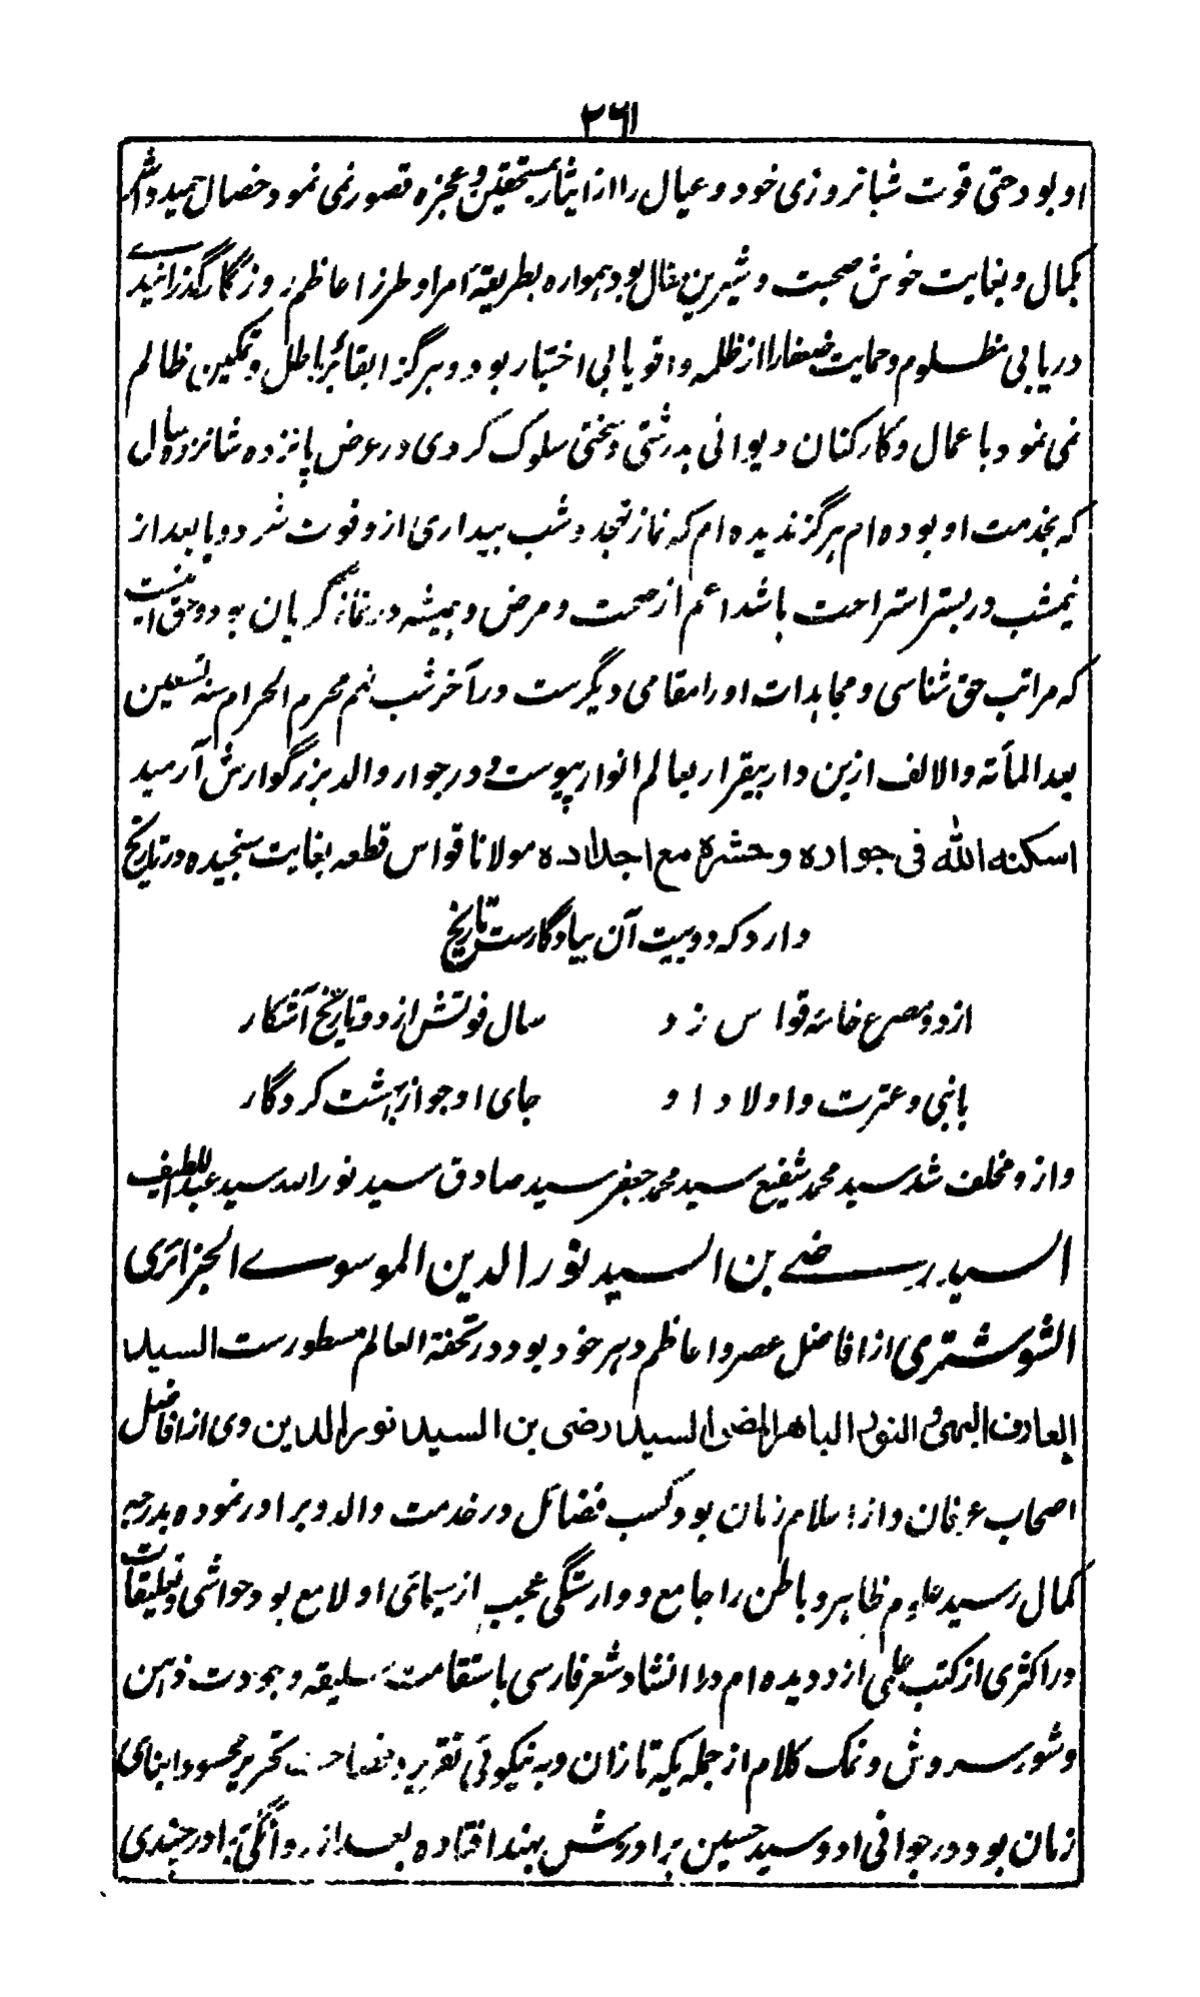 ۲۶۱
او بود حتی قوت شبانروزی خود و عیال را از ایثار بمستحقین و عجزه قصور نمی نمود خصال حمیده اش
بکمال و بغایت خوش صحبت و شیرین مقال بود همواره بطریقهٔ امرا و طرز اعاظم روزگار گذرانیدے
دریابی مظلوم و حمایت ضعفا را از ظلمه و اقویا بی اختیار بود و هرگز ابقا بر باطل و تمکین ظالم
نمی نمود با عمال و کارکنان دیوانی بدرشتی و سختی سلوک کردی در عرض پانزده شانزده سال
که بخدمت او بوده ام هرگز ندیده ام که نماز تهجد و شب بیداری از و فوت شود و یا بعد از
نیمشب در بستر استراحت باشد اعم از صحت و مرض و همیشه در نماز گریان بود و حق اینست
که مراتب حق شناسی و مجاهدات او را مقامی دیگرست در آخر شب نهم محرم الحرام سنه تسعین
بعد المأته و الالف ازین دار بیقرار بعالم انوار پیوست و در جوار والد بزرگوارش آرمید
اسکنه الله فی جواره و حشره مع اجداده مولانا قواس قطعه بغایت سنجیده در تاریخ
دارد که دو بیت آن بیادگارست تاریخ
از دو مصرع خامهٔ قواس زد سال فوتش از دو تاریخ آشکار
با نبی و عترت و اولاد او جای او جو از بهشت کردگار
و از و مخلف شد سید محمد شفیع سید محمد جعفر سید صادق سید نور الله سید عبد اللطیف
السید رضے بن السید نور الدین الموسوے الجزائری
الشوشتری از افاضل عصر و اعاظم دهر خود بود در تحفة العالم مسطورست السید
العارف البهی و النور الباهر المضی السید رضی بن السید نور الدین وی از افاضل
اصحاب عرفان و از اسلام زمان بود کسب فضائل در خدمت والد و برادر نموده بدرجه
کمال رسید علوم ظاهر و باطن را جامع و وارستگی عجیب از سیمای او لامع بود حواشی و تعلیقات
در اکثری از کتب علمی از و دیده ام در انشاد شعر فارسی باستقامت سلیقه و جودت ذهن
و شور سروش و نمک کلام از جمله یکه تازان و به نیکوئی تقریر و فصاحت تحریر محسود ابنای
زمان بود در جوانی او و سید حسین برادرش بهند افتاده بعد از روانگی برادر چندی